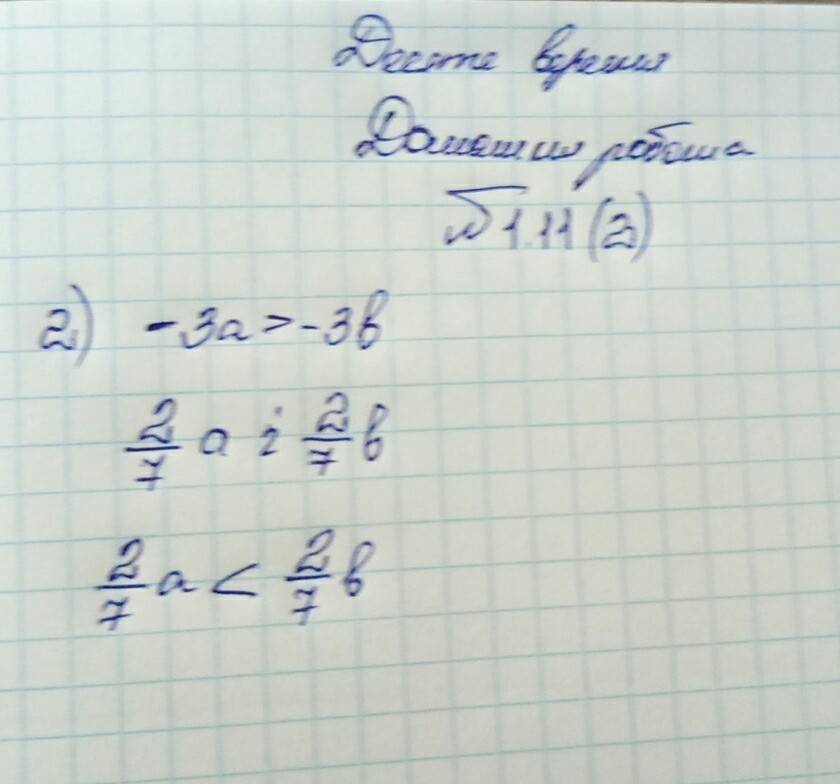 Десяте вересня
Домашня робота
№ 1.11 (2)
2) -3a > -3b
2/7 a і 2/7 b
2/7 a < 2/7 b